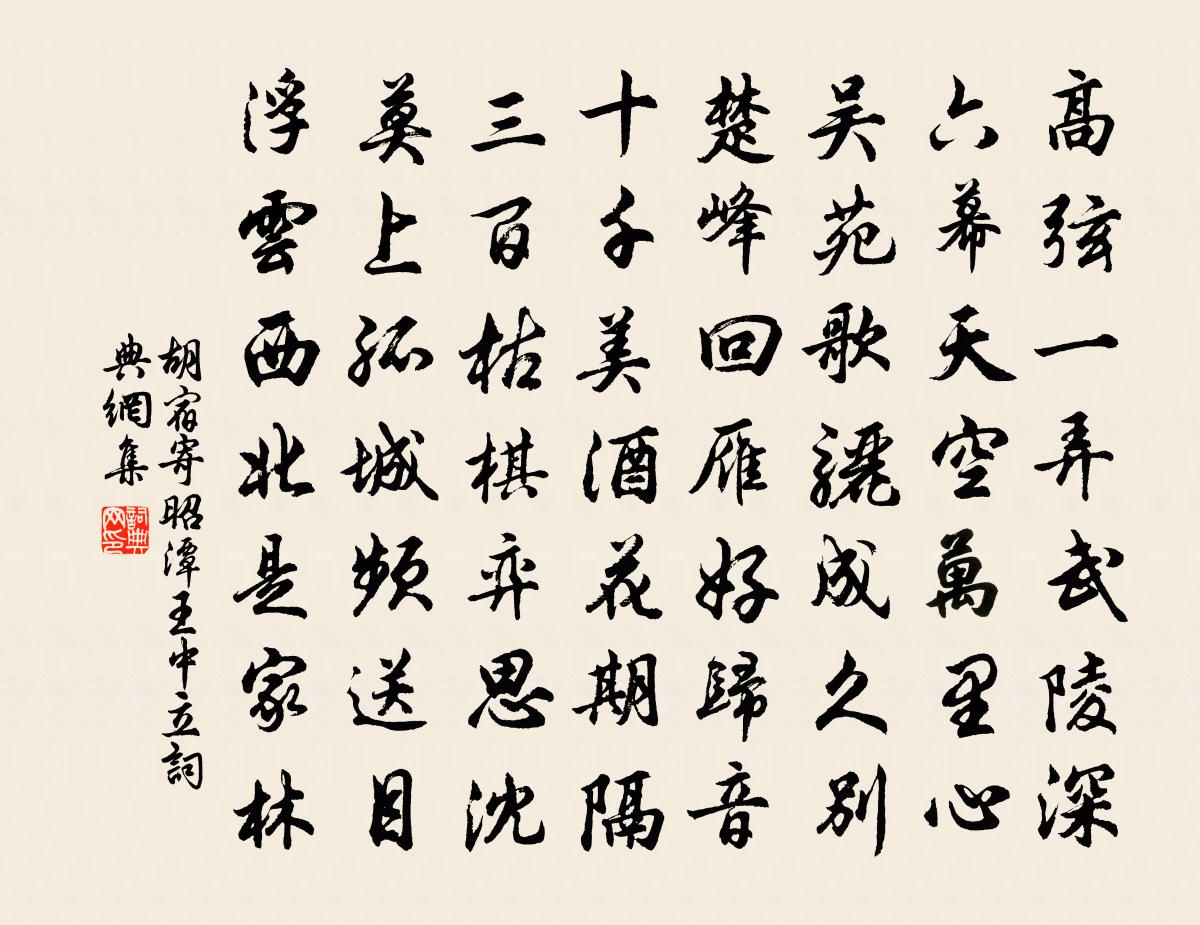 高弦一弄武陵深
六幕天空萬里心
吴苑歌驪成久别
楚峰回雁好歸音
十千美酒花期隔
三百枯棋弈思沈
莫上孤城頻送目
浮雲西北是家林
胡宿寄昭潭王中立詞
典網集
詞典
网印